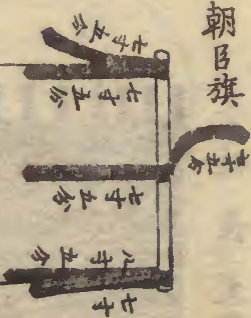 朝臣旗
七寸五分
七寸五分
七寸五分
七寸五分
八寸五分
七寸